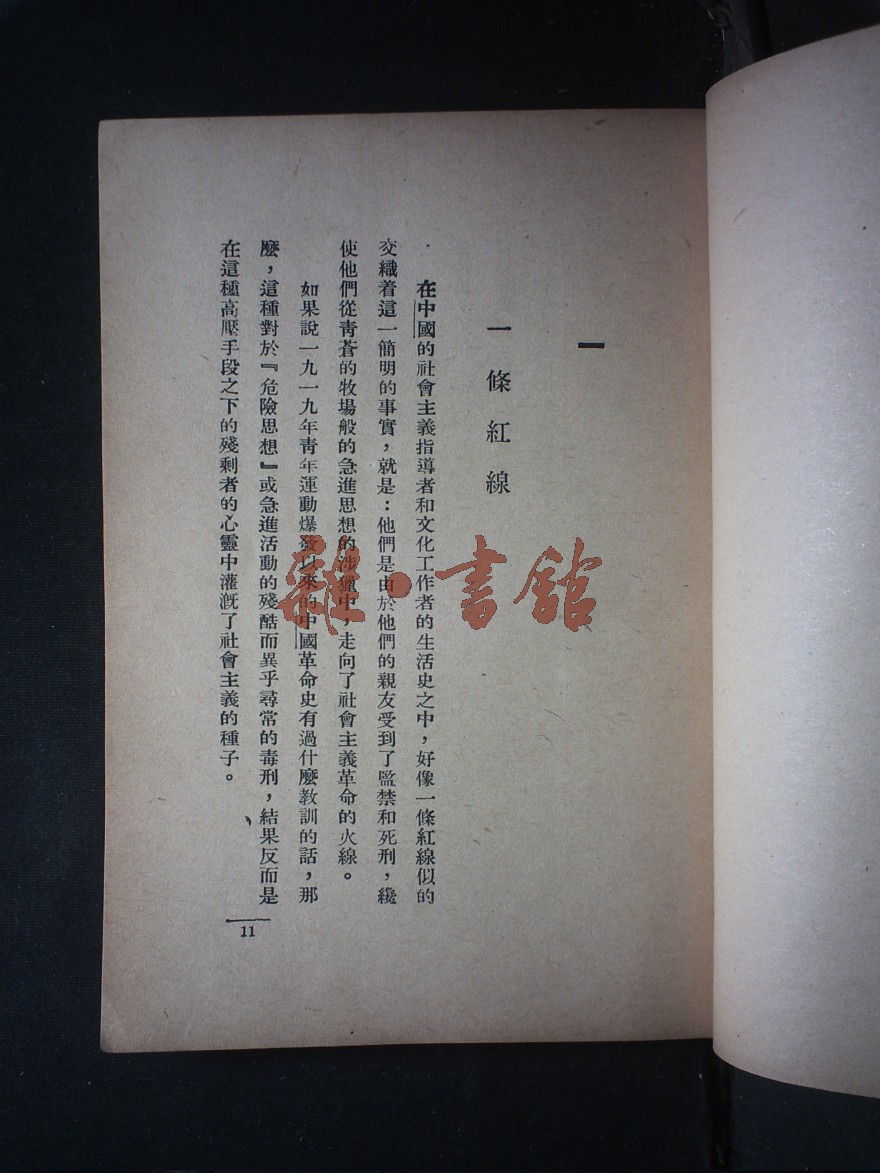 一
一條紅線
在中國的社會主義指導者和文化工作者的生活史之中，好像一條紅線似的
交織着這一簡明的事實，就是：他們是由於他們的親友受到了監禁和死刑，纔
使他們從靑蒼的牧場般的急進思想的涉獵中，走向了社會主義革命的火線。
如果說一九一九年靑年運動爆發以來的中國革命史有過什麼教訓的話，那
麼，這種對於『危險思想』或急進活動的殘酷而異乎尋常的毒刑，結果反而是
在這種高壓手段之下的殘剩者的心靈中灌漑了社會主義的種子。
11
雜·書館